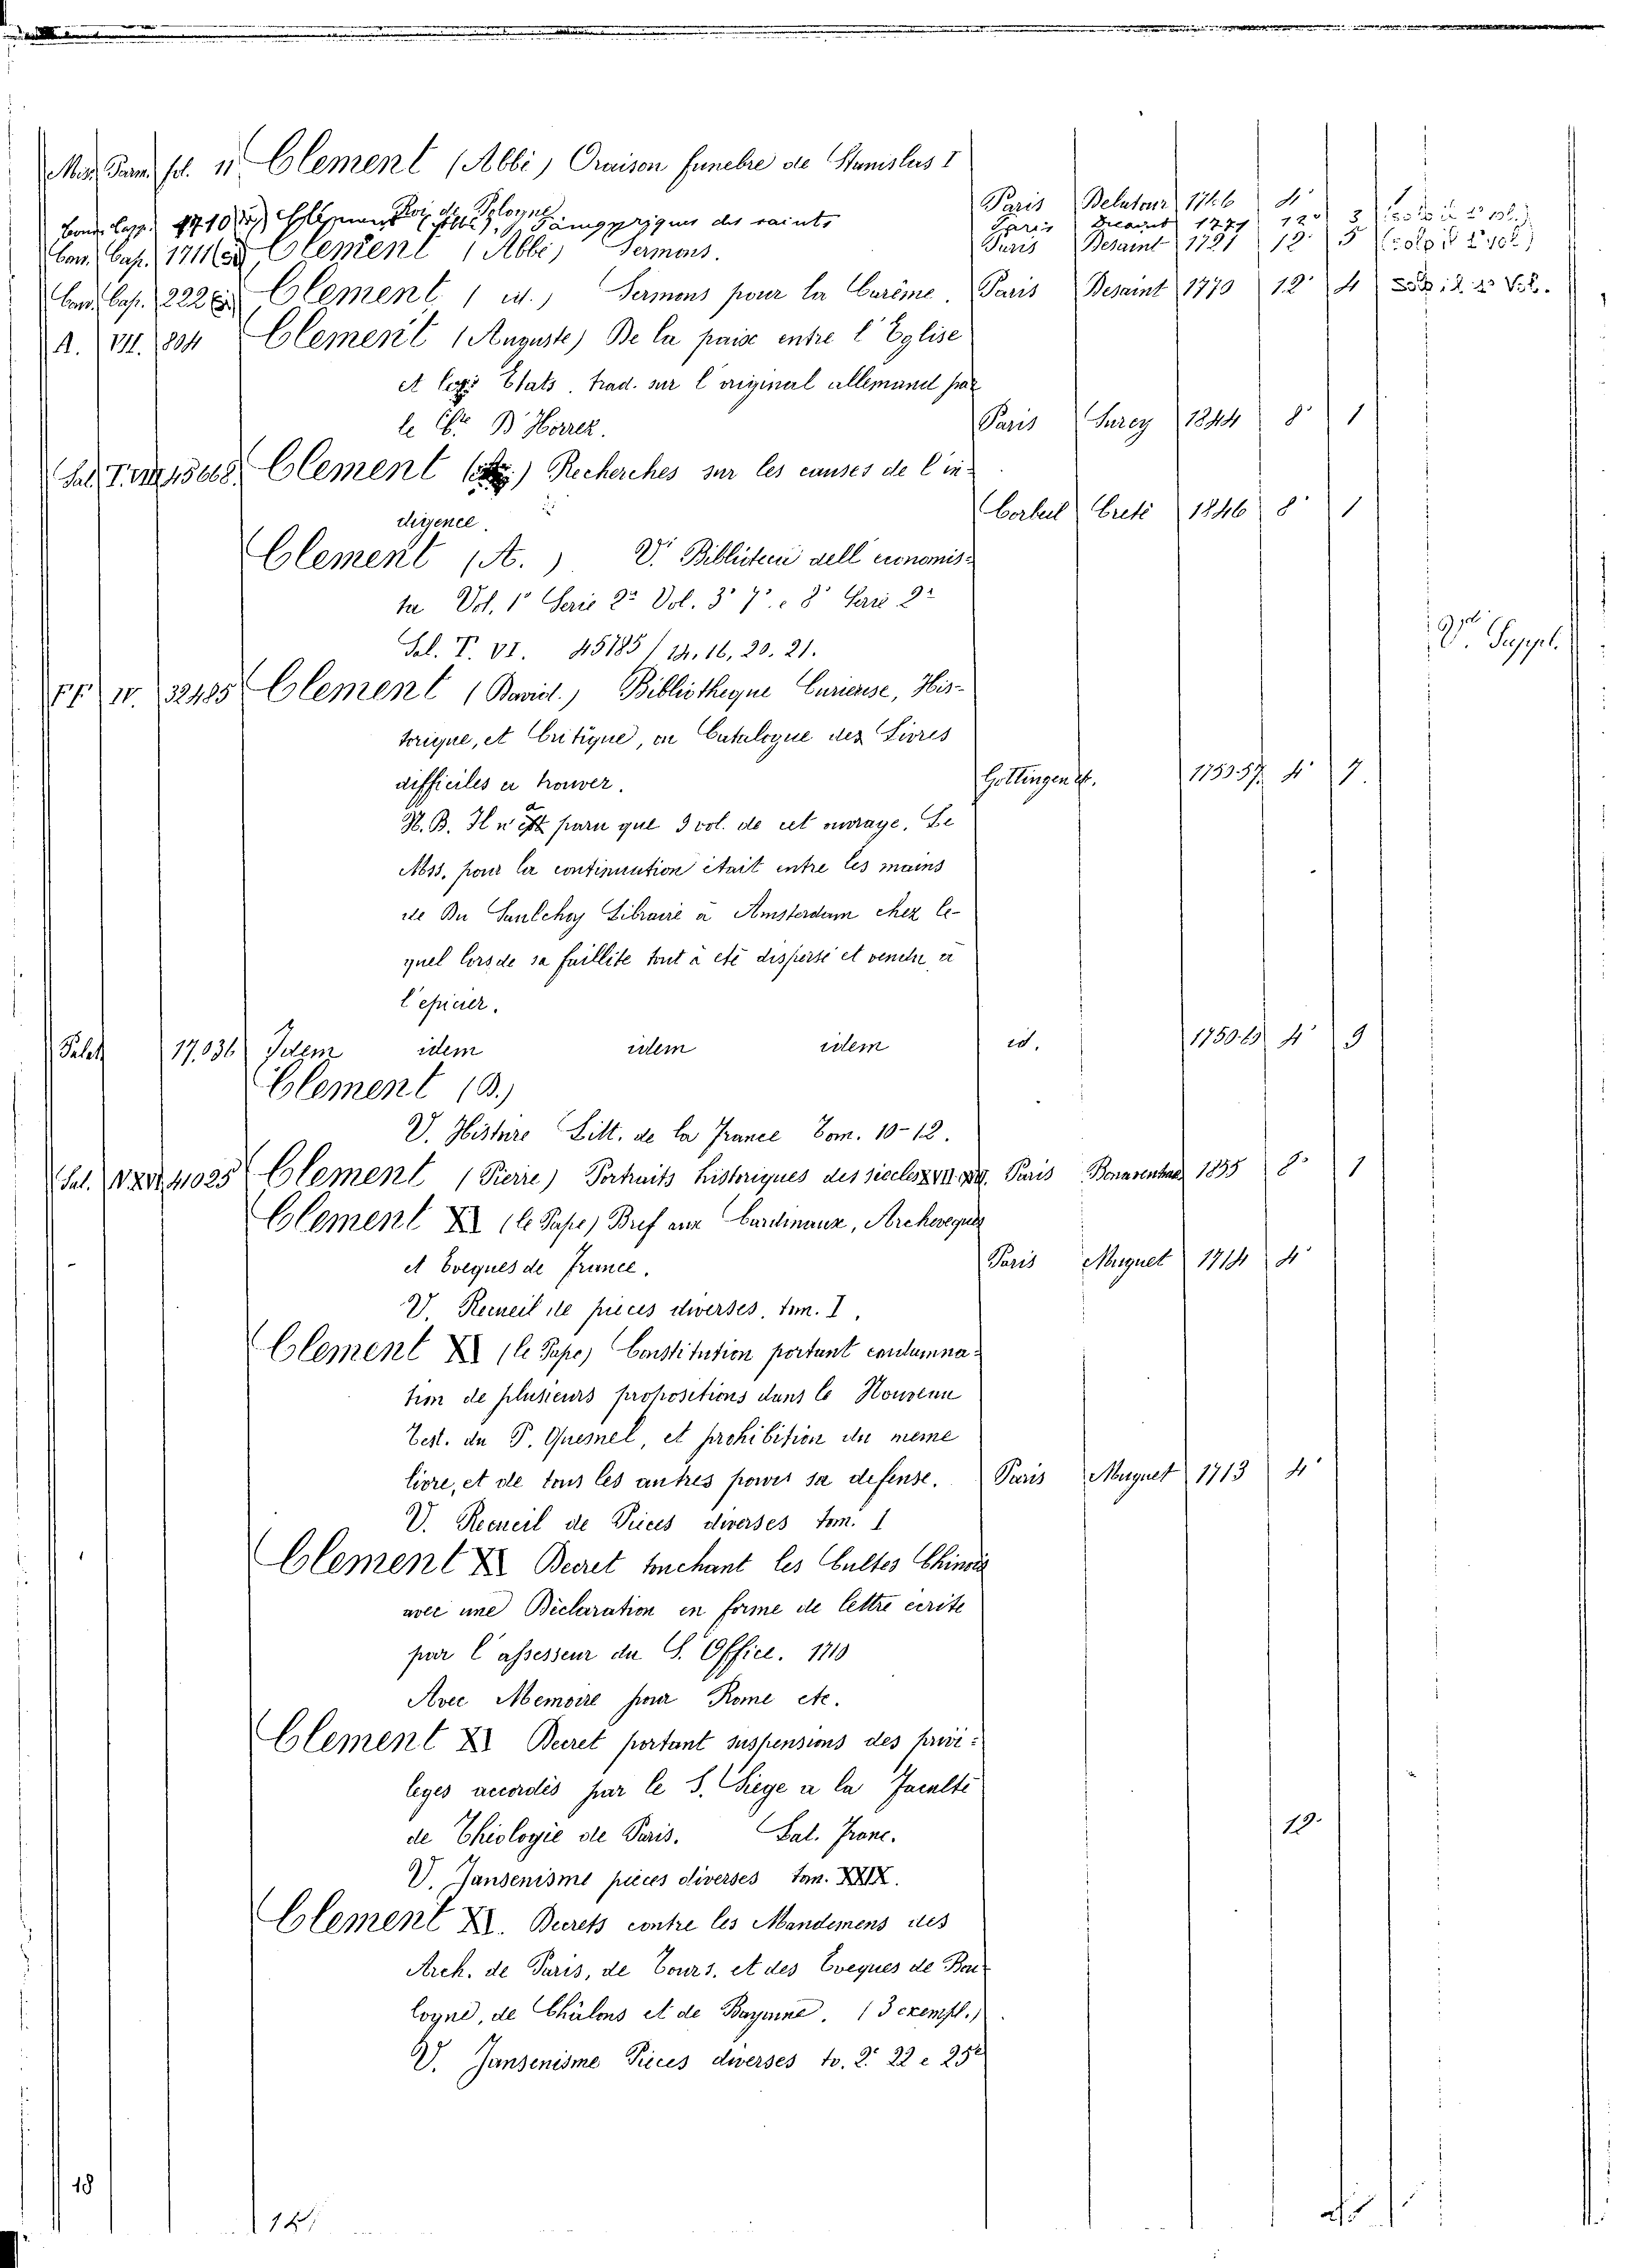 fol. 11 Clement (Abbé) Oraison funebre de Stanislas I
Roi de Pologne Paris Delatour 1766 4°
1710 (Abbé) Panegyriques des saints Paris Desaint 1771 12° 3
Cap. 1711 Clement (Abbé) Sermons. Paris Desaint 1771 12° 5
Cap. 222 Clement (id.) Sermons pour le Carême. Paris Desaint 1770 12° 4
A. VII. 804 Clement (Auguste) De la paix entre l'Eglise
et les Etats. trad. sur l'original allemand par
le Cte B Horrer. Paris 1844 8° 1
Sal. T. VII 45668 Clement Recherches sur les causes de l'in-
digence. Corbeil Creté 1846 8° 1
Clement (A.) V. Biblioteca dell economis-
ta Vol. 1° Serie 2a Vol. 3° 7° e 8° Serie 2a
Sal. T. VI. 45785 / 14, 16, 20. 21.
Vi Suppl.
FF. IV. 32485 Clement (David.) Bibliotheque Curieuse, His-
torique, et Critique, ou Catalogue des Livres
difficiles a trouver. Gottingen 1750-57. 4° 7.
N. B. Il n'a paru que 9 vol. de cet ouvrage. Le
Mss. pour la continuation était entre les mains
de Du Saulchoy Libraire a Amsterdam chez le-
quel lors de sa faillite tout a eté dispersé et vendu a
l'epicier.
17.036 Idem idem idem idem id. 4° 9
Clement (D.)
V. Histoire Litt. de la France Tom. 10-12.
Sal. 41025 Clement (Pierre) Portraits historiques des siecles XVII. Paris 1855 8° 1
Clement XI (le Pape) Bref aux Cardinaux, Archeveques
et Eveques de France. Paris Muguet 1714 4°
V. Recueil de pieces diverses. tom. I.
Clement XI (le Pape) Constitution portant condamna-
tion de plusieurs propositions dans le Nouveau
Test. du P. Quesnel, et prohibition du meme
livre, et de tous les autres pour sa defense. Paris Muguet 1713 4°
V. Recueil de Pieces diverses tom. 1
Clement XI Decret touchant les Cultes Chinois
avec une Declaration en forme de lettre ecrite
par l'assesseur du S. Office. 1710
Avec Memoire pour Rome etc.
Clement XI Decret portant suspensions des privi-
leges accordés par le S. Siege a la Faculté
de Théologie de Paris. Lat. Franc. 12.
V. Jansenisme pieces diverses tom. XXIX.
Clement XI. Decrets contre les Mandemens des
Arch. de Paris, de Tours, et des Eveques de Bou-
logne, de Châlons et de Bayonne. (3 exempl.)
V. Jansenisme Pieces diverses to. 2° 22 e 25°
18